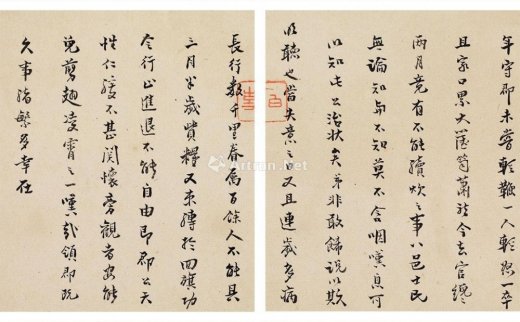 年守郡未嘗輕鞭一人輕一卒
且家口累大篋笥蕭然今去官纔
兩月竟有不能續炊之事八邑士民
無論知與不知莫不含咽嘆息可
以知公治狀矣弟非敢飾說以欺
聽也當失意之又且連歲多病
長行數千里眷屬百餘人不能具
三月半歲資糧又束縛於回旗功
令行止進退不能自由即郡公天
性仁緩不甚關懷旁觀者安能
免剪翅凌霄之一嘆哉領郡既
久事緒繁多幸在
Artron.Net